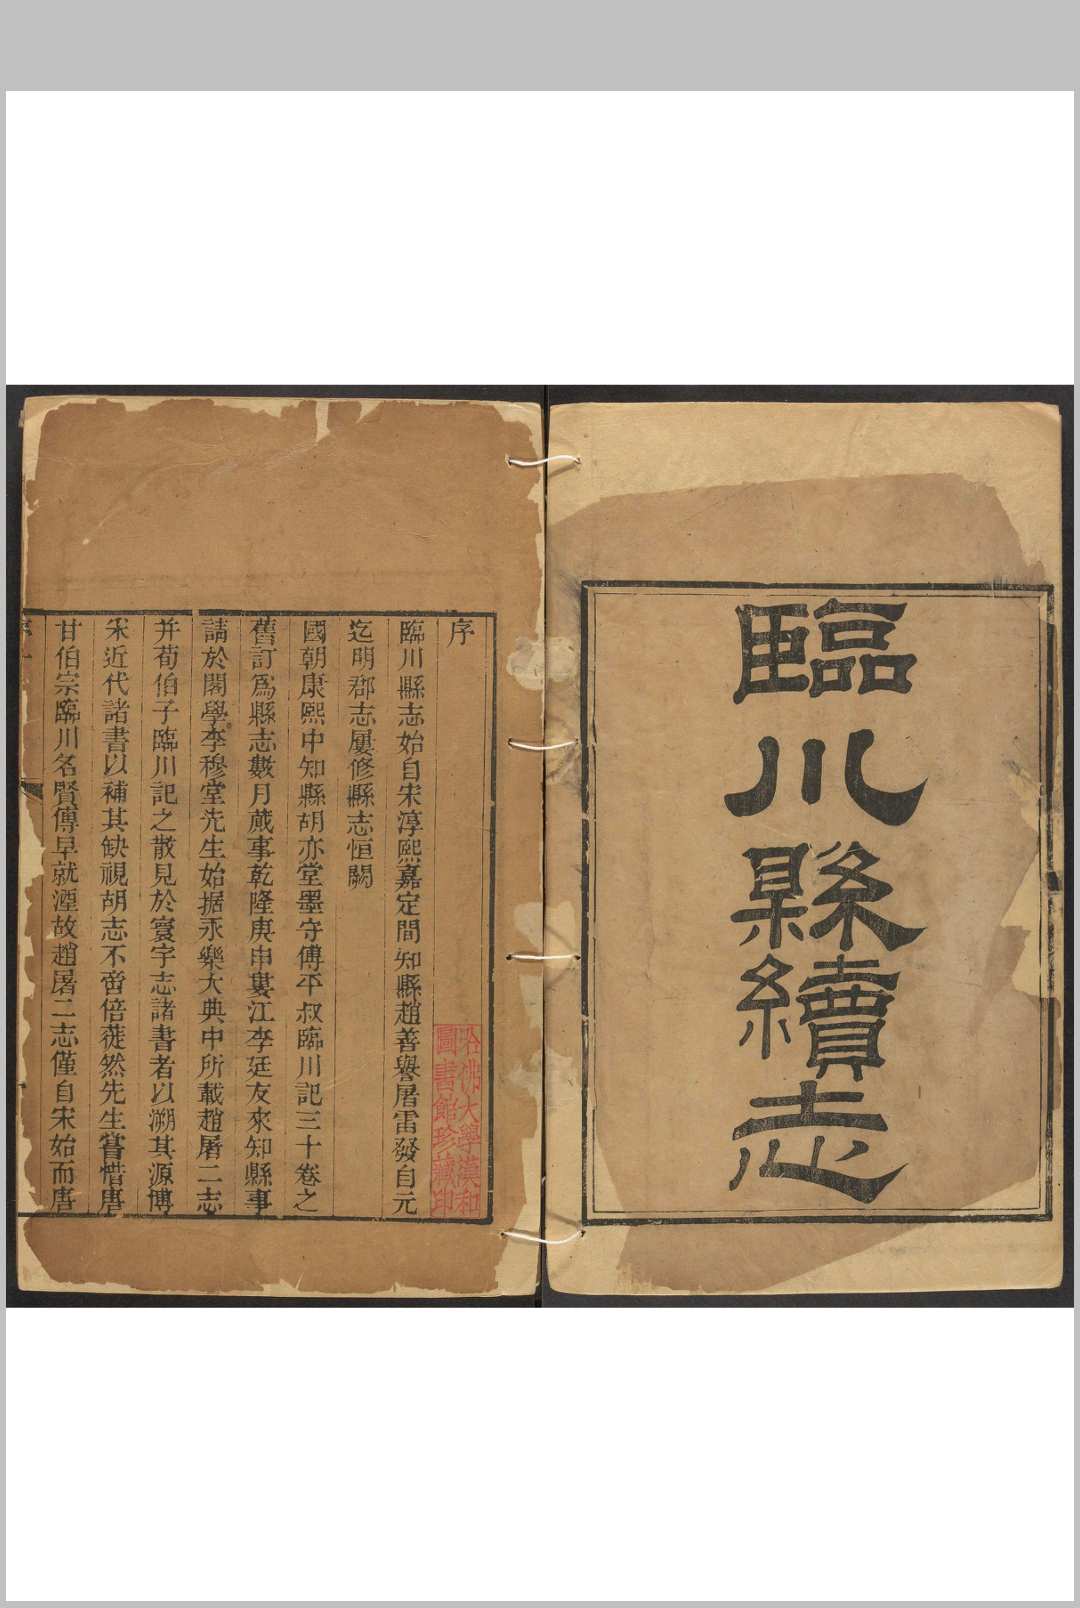 臨川縣續志
序
哈佛大學漢和
圖書館珍藏印
臨川縣志始自宋淳熙嘉定間知縣趙善譽屠雷發自元
迄明郡志屢修縣志恒闕
國朝康熙中知縣胡亦堂墨守傅平叔臨川記三十卷之
舊訂爲縣志數月蕆事乾隆庚申婁江李廷友來知縣事
請於閣學李穆堂先生始据永樂大典中所載趙屠二志
并荀伯子臨川記之散見於寰宇志諸書者以溯其源博
采近代諸書以補其缺視胡志不啻倍蓰然先生嘗惜唐
甘伯宗臨川名賢傳早就湮故趙屠二志僅自宋始而唐